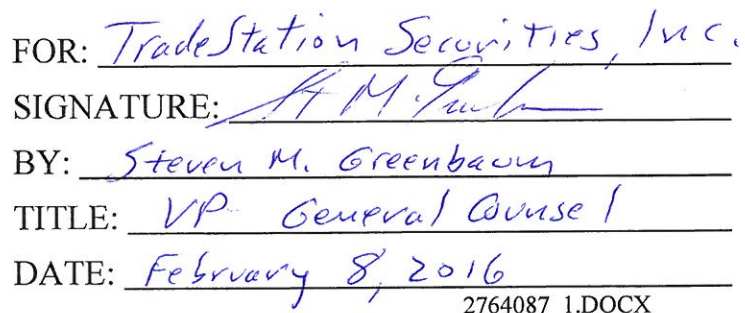 FOR: TradeStation Securities, Inc.
SIGNATURE:
BY: Steven M. Greenbaum
TITLE: VP General Counsel
DATE: February 8, 2016
2764087_1.DOCX